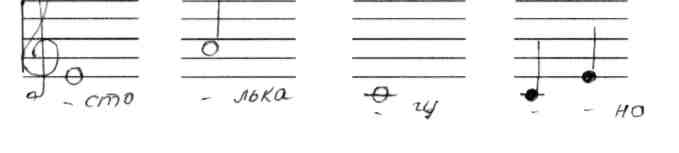 - сто - лька - гу - - но